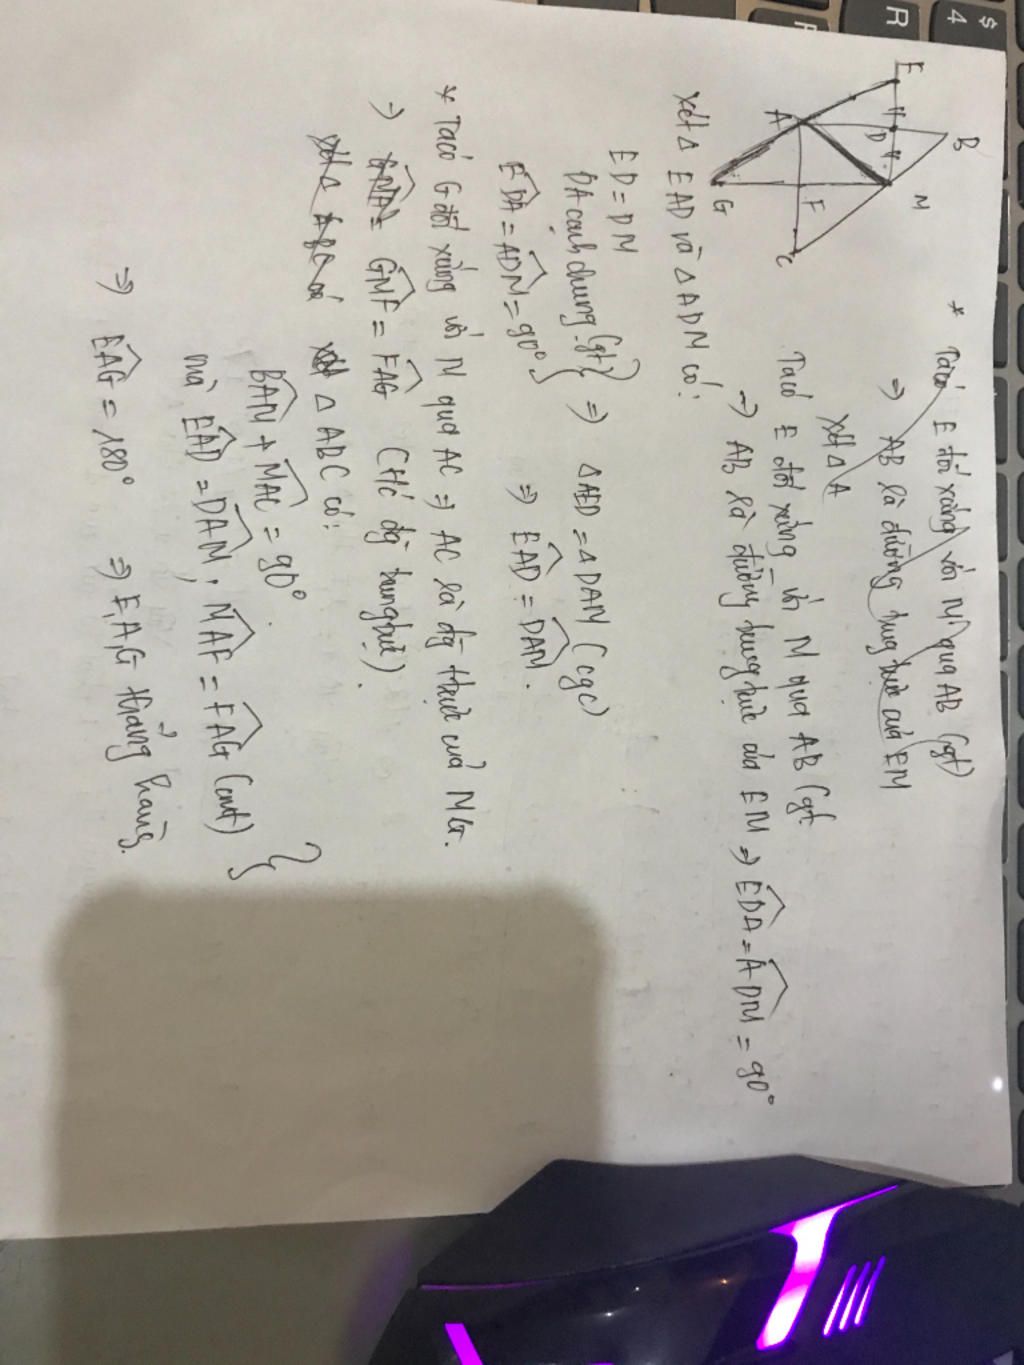 $
4
R
E
H
D
B
A
M
G
F
C
* Ta có E đối xứng với M qua AB (gt)
⇒ AB là đường trung trực của EM
xét Δ A
Ta có E đối xứng với M qua AB (gt
⇒ AB là đường trung trực của EM ⇒ EDA = ADM = 90°
xét Δ EAD và Δ ADM có:
ED = DM
DA cạnh chung (gt) } ⇒ ΔAED = ΔDAM (cgc)
EDA = ADM = 90° ⇒ EAD = DAM.
* Ta có G đối xứng với M qua AC ⇒ AC là đg trực của MG.
⇒ GMA = GMF = FAG (t/c đg trung trực).
xét Δ ABC có
xét Δ ABC có:
BAM + MAC = 90°.
mà EAD = DAM; MAF = FAG (cmt) }
⇒ EAG = 180° ⇒ E, A, G thẳng hàng.